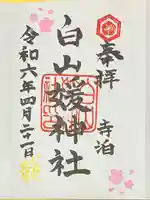 奉拝
寺泊
白山媛神社
令和六年四月二十一日